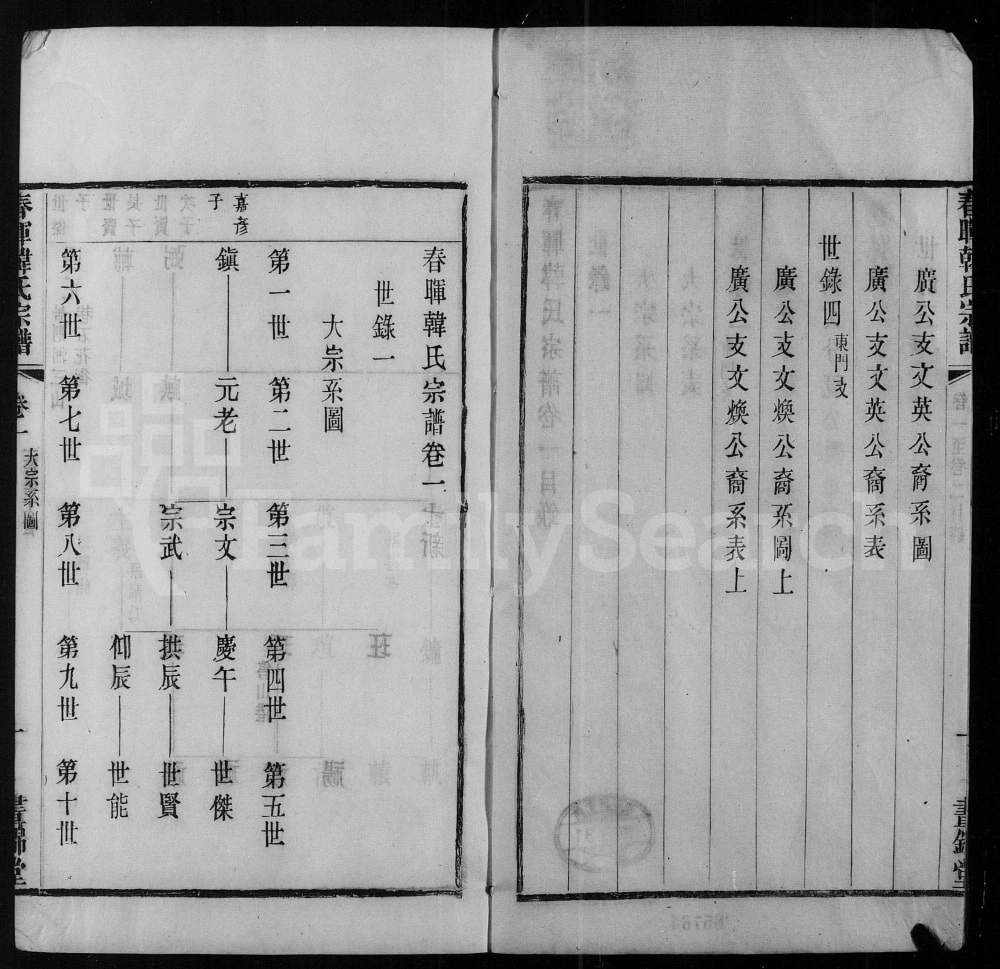 廣公支文英公裔系圖
廣公支文英公裔系表
世錄四 東門支
廣公支文煥公裔系圖上
廣公支文煥公裔系表上
春暉韓氏宗譜卷一
世錄一
大宗系圖
第一世 第二世 第三世 第四世 第五世
嘉彥子
鎮 元老 宗文 慶午 世傑
宗武 拱辰 世賢
仰辰 世能
第六世 第七世 第八世 第九世 第十世
春暉韓氏宗譜 卷一 大宗系圖 一 晝錦堂
春暉韓氏宗譜
晝錦堂
FamilySearch